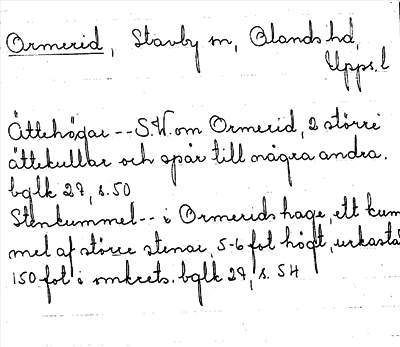 Ormerid, Stavby sn, Olands hd,
Upps. l
Ättehögar -- S.V. om Ormerid, 2 större
ättekullar och spår till några andra.
bglk 29, s. 50
Stenkummel -- i Ormerids hage, ett kum
mel af större stenar, 5-6 fot högt, urkasta
150 fot i omkrets. bglk 29, s. 54